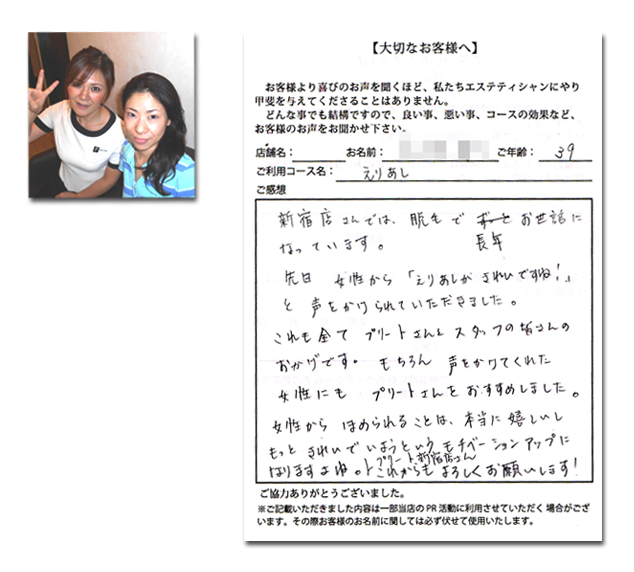 【大切なお客様へ】
お客様より喜びのお声を聞くほど、私たちエステティシャンにやり
甲斐を与えてくださることはありません。
どんな事でも結構ですので、良い事、悪い事、コースの効果など、
お客様のお声をお聞かせ下さい。
店舗名： お名前： ご年齢： 39
ご利用コース名： えりあし
ご感想
新宿店さんでは、脱毛で ずーっと お世話に
長年
なっています。
先日 女性から「えりあしが きれいですね！」
と 声をかけられていただきました。
これも全て プリートさんと スタッフの皆さんの
おかげです。 もちろん 声をかけてくれた
女性にも プリートさんを おすすめしました。
女性から ほめられることは、本当に嬉しいし
もっと きれいで いようという モチベーションアップに
なりますよね。
プリート新宿店さん
これからも よろしくお願いします！
ご協力ありがとうございました。
※ご記載いただきました内容は一部当店の PR 活動に利用させていただく場合がござ
います。その際お客様のお名前に関しては必ず伏せて使用いたします。